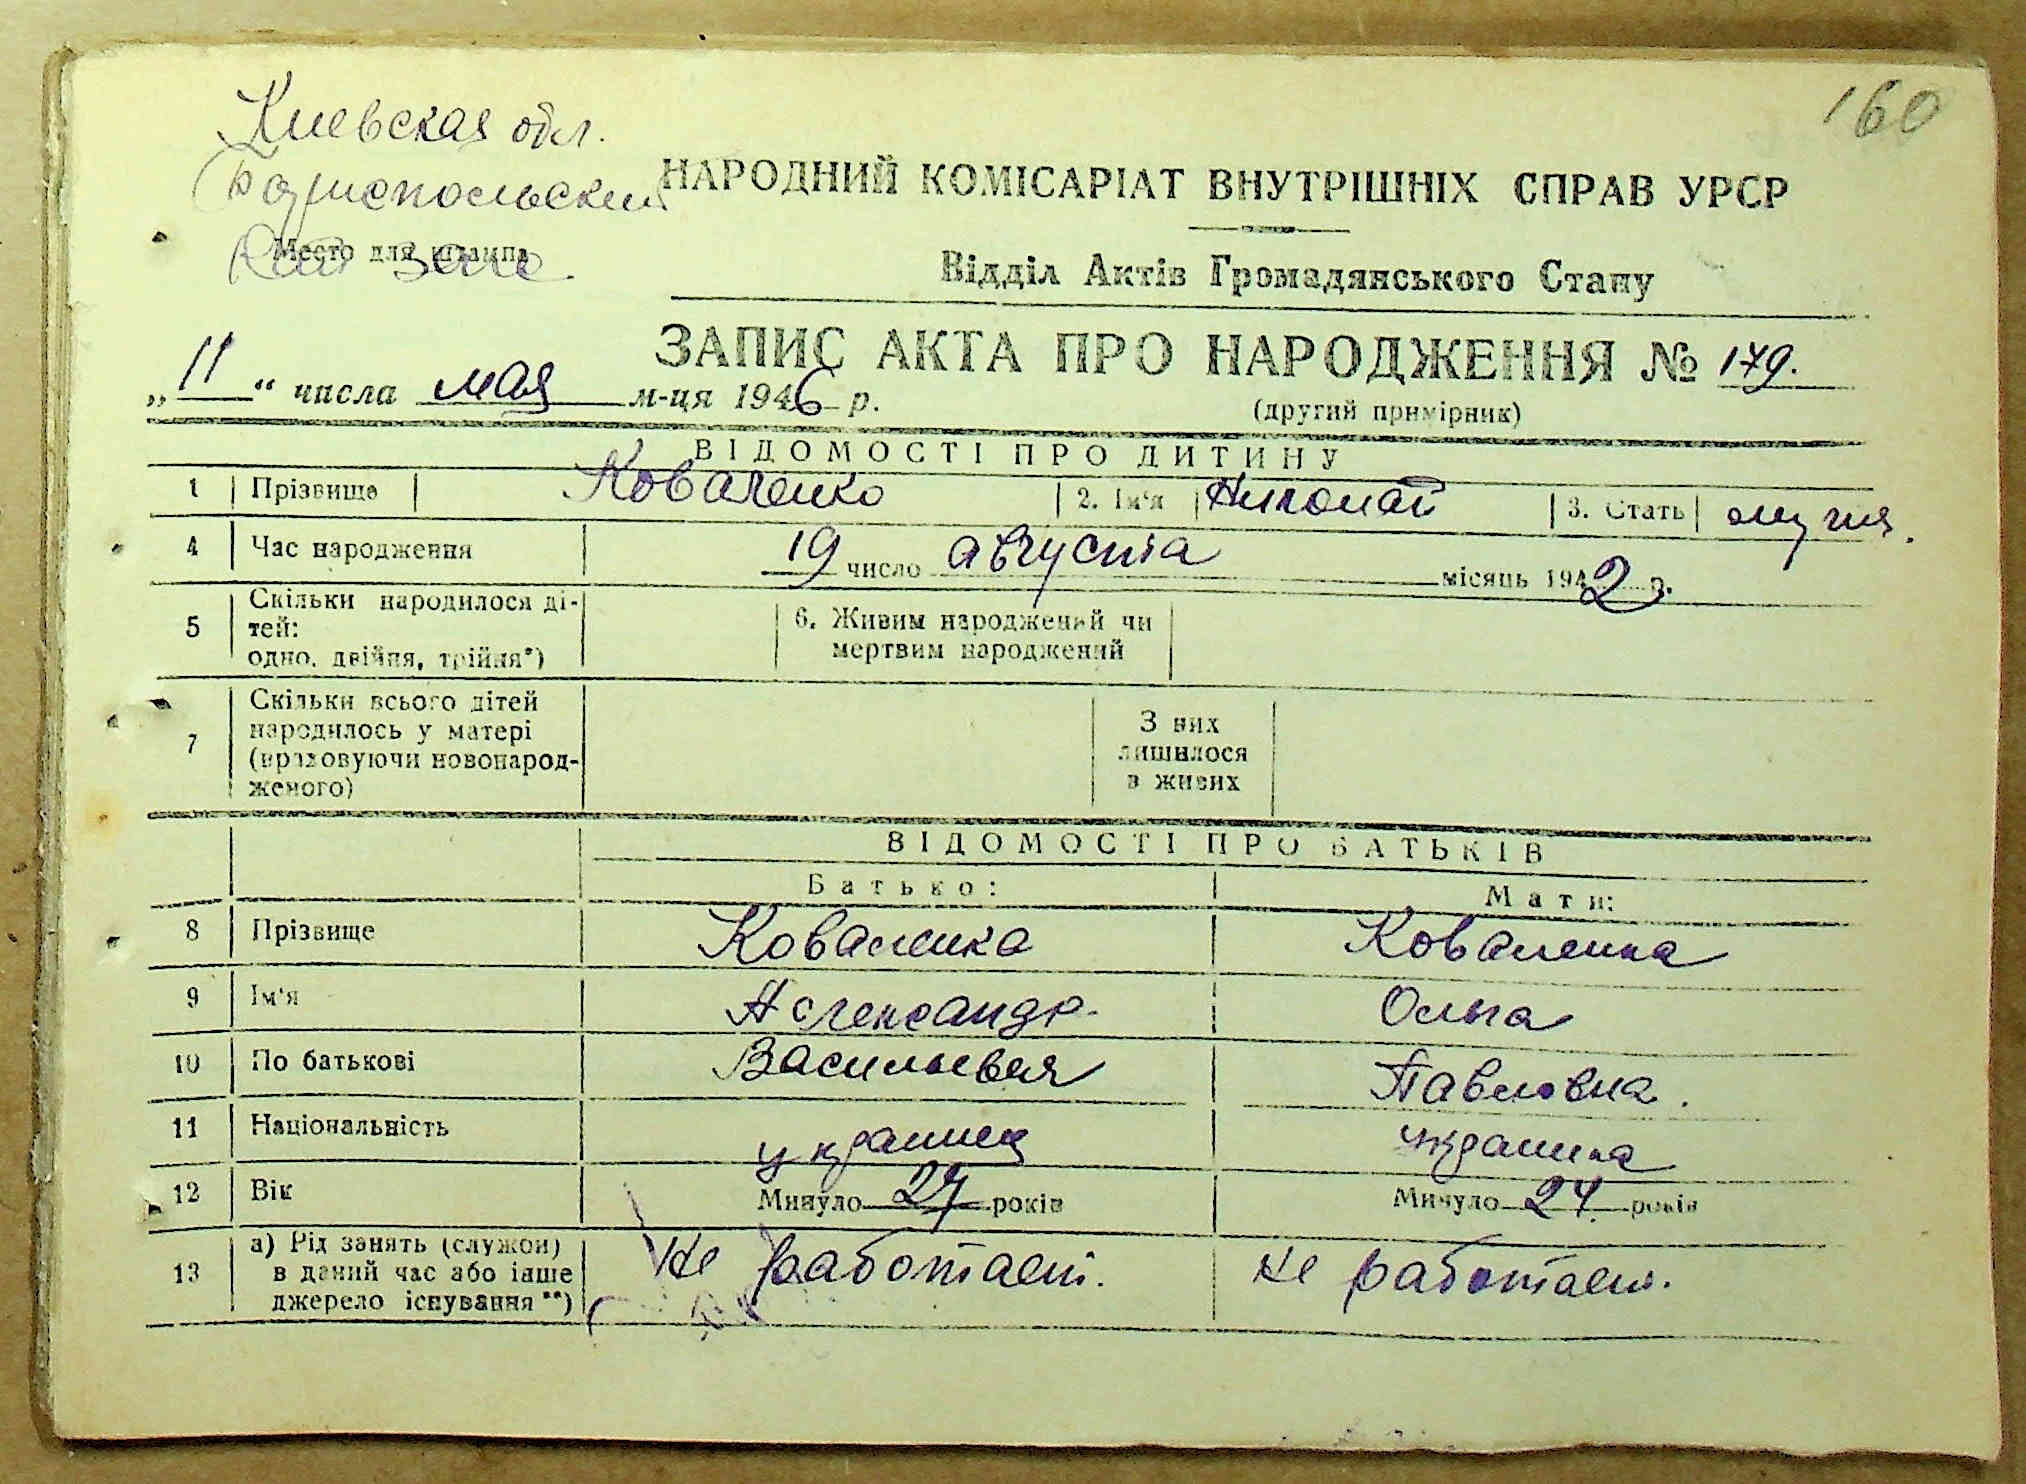 160
Киевская обл.
Бориспольский
Рай загс
Место для штампа
НАРОДНИЙ КОМІСАРІАТ ВНУТРІШНІХ СПРАВ УРСР
Відділ Актів Громадянського Стану
ЗАПИС АКТА ПРО НАРОДЖЕННЯ № 179.
„11“ числа мая м-ця 1946 р.
(другий примірник)
ВІДОМОСТІ ПРО ДИТИНУ
1 Прізвище Коваленко 2. Ім'я Николай 3. Стать муж.
4 Час народження 19 число августа місяць 1942 р.
5 Скільки народилося ді-
тей:
одно, двійня, трійня*)
6. Живим народжений чи
мертвим народжений
7 Скільки всього дітей
народилось у матері
(враховуючи новонарод-
женого)
З них
лишилося
в живих
ВІДОМОСТІ ПРО БАТЬКІВ
Батько: Мати:
8 Прізвище Коваленко Коваленко
9 Ім'я Александр. Ольга
10 По батькові Васильевич Павловна.
11 Національність украинец украинка
12 Вік Минуло 27 років Минуло 24. років
13 а) Рід занять (служби)
в даний час або інше
джерело існування**)
Не работает. не работает.